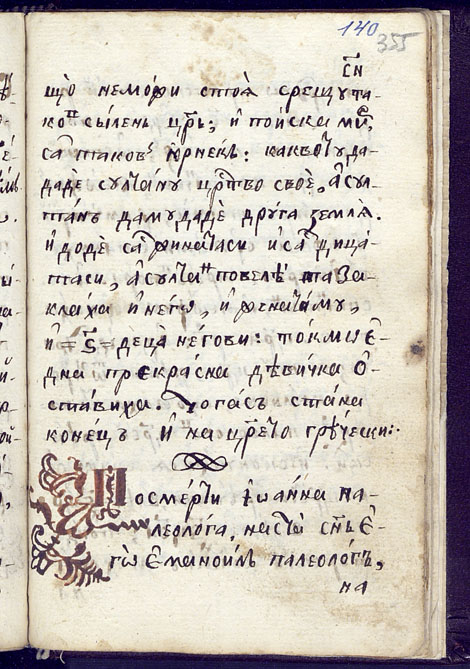 140
355
сн҃
що неможи стоя срещу та-
копъ сыленъ цр҃ь; и поиска ми́ръ,
са таковъ юрнекъ: како́ то да
даде султа́ну цр҃тво своѐ, а сул-
та́нъ да му даде друга земля.
и доде са финаѝаси и са дица-
таси, а султанъ повеле таза-
клаха и него, и фина́та му,
и =ѕ҃= деца́ негови: токмо е-
дна прекрасна девичка о-
ставиха. Тогасъ стана
конецъ и на цр҃ето гре́чески:·
По смерти Іѡанна па-
леолога, наста сн҃ъ е-
гѡ Еманоилъ палеологъ,
на